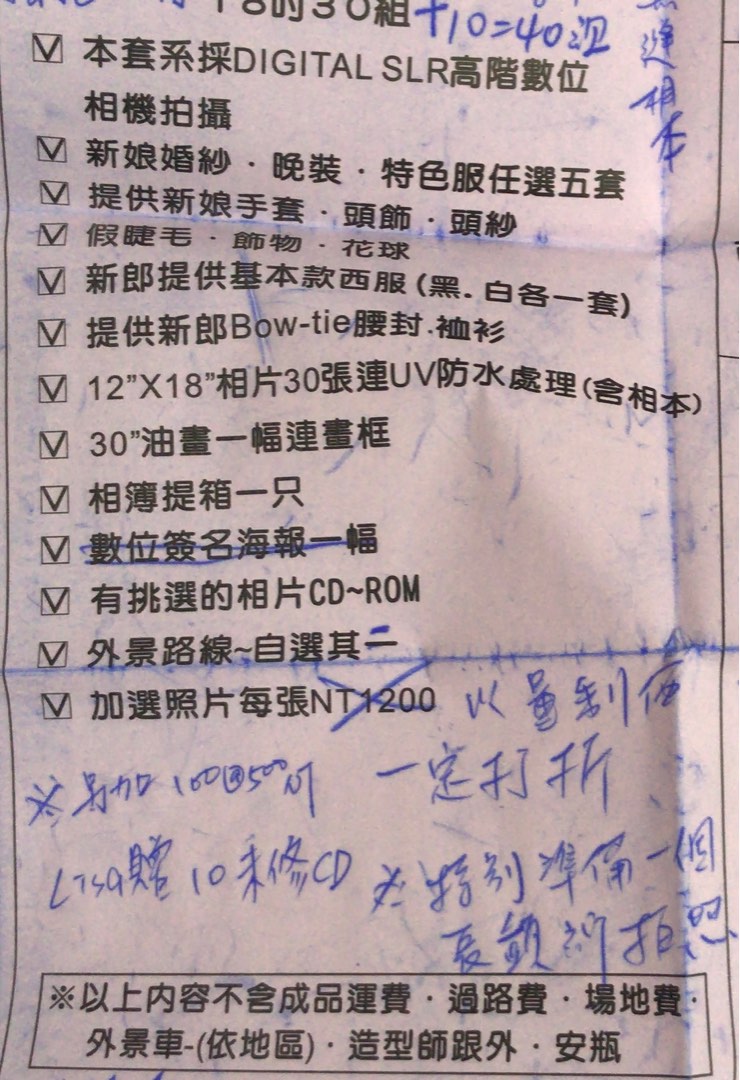 18吋30組+10=40組
無縫相本
本套系採DIGITAL SLR高階數位
相機拍攝
新娘婚紗．晚裝．特色服任選五套
提供新娘手套．頭飾．頭紗
假睫毛．飾物．花球
新郎提供基本款西服(黑.白各一套)
提供新郎Bow-tie腰封.裇衫
12”X18”相片30張連UV防水處理(含相本)
30”油畫一幅連畫框
相簿提箱一只
數位簽名海報一幅
有挑選的相片CD~ROM
外景路線~自選其二
加選照片每張NT1200 以量制價
一定打折
※另加100@500
贈10未修CD
※特別準備一個
拍照
※以上內容不含成品運費．過路費．場地費．
外景車-(依地區)．造型師跟外．安瓶